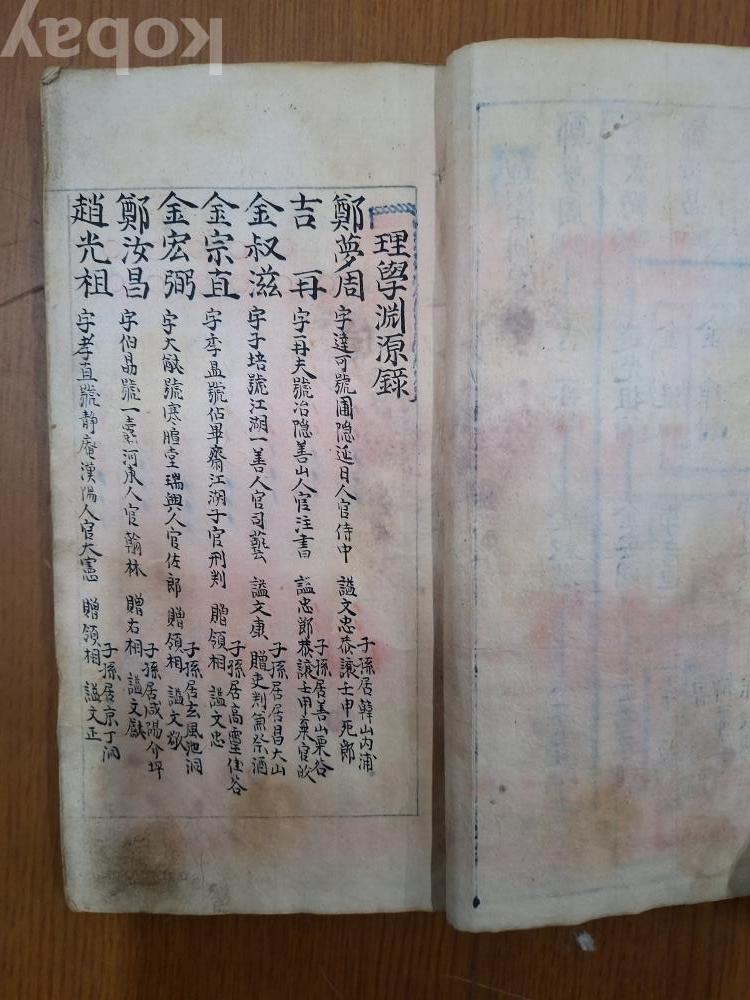 理學淵源錄
鄭夢周 字達可號圃隐延日人官侍中 謚文忠恭讓壬申死 子孫居韓山内浦
吉 再 字再夫號冶隐善山人官注書 謚忠 恭讓壬申棄官 子孫居善山栗谷
金叔滋 字子培號江湖一善人官司藝 謚文康 贈吏判兼祭酒 子孫居居昌大山
金宗直 字季昷號佔畢齋江湖子官刑判 贈領相 謚文忠 子孫居高靈佳谷
金宏弼 字大猷號寒暄堂瑞興人官佐郎 贈領相 謚文敬 子孫居玄風池洞
鄭汝昌 字伯勗號一蠹河東人官翰林 贈右相 謚文獻 子孫居咸陽介坪
趙光祖 字孝直號静庵漢陽人官大憲 贈領相 謚文正 子孫居京丁洞
kobay